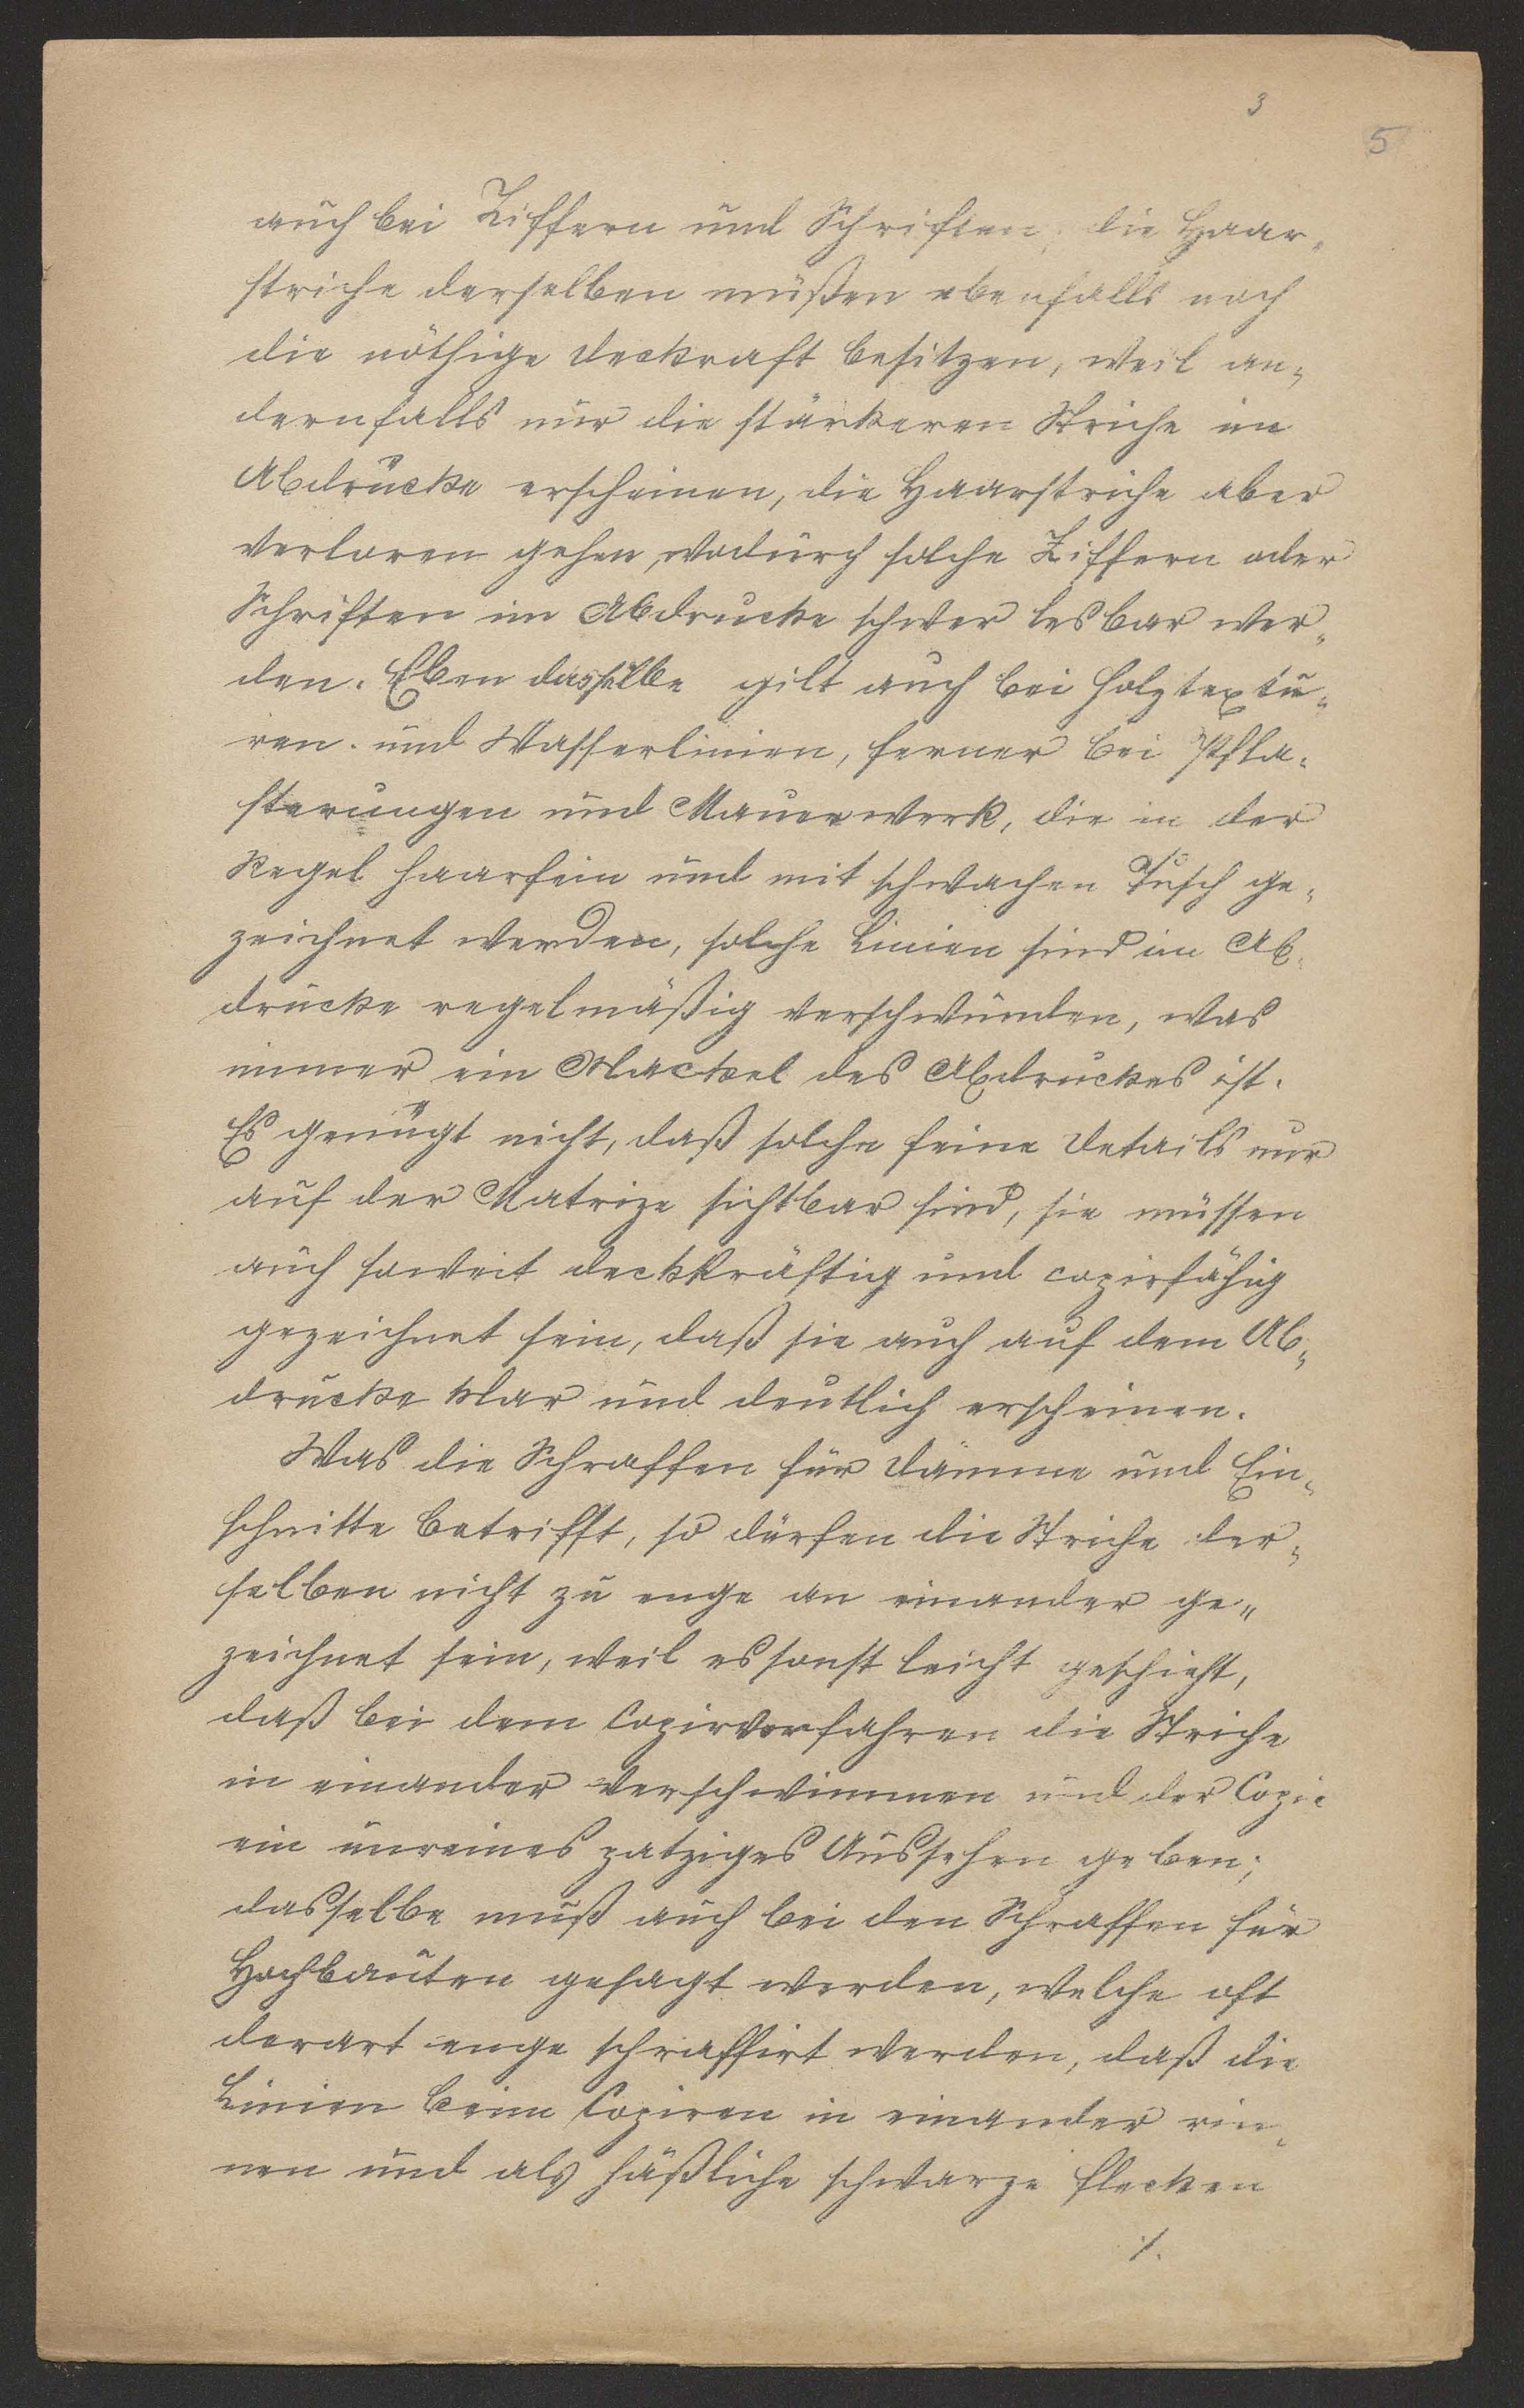 3
5
auch bei Ziffern und Schriften; die Haar„
striche derselben müßen ebenfalls noch
die nöthige Deckkraft besitzen, weil an„
dernfalls nur die stärkeren Striche im
Abdrucke erscheinen, die Haarstriche aber
verloren gehen, wodurch solche Ziffern oder
Schriften im Abdrucke schwer lesbar wer„
den. Eben dasselbe gilt auch bei Holztextu„
ren. und Wasserlinien, ferner bei Pfla„
sterungen und Mauerwerk, die in der
Regel haarfein und mit schwachen Tusch ge„
zeichnet werden, solche Linien sind im Ab„
drucke regelmäßig verschwunden, was
immer ein Mackel des Abdruckes ist.
Es genügt nicht, daß solche feine Details nur
auf der Matrize sichtbar sind, sie müssen
auch soweit deckkräftig und copirfähig
gezeichnet sein, daß sie auch auf dem Ab„
drucke klar und deutlich erscheinen.
Was die Schraffen für Dämme und Ein„
schnitte betrifft, so dürfen die Striche der„
selben nicht zu enge an einander ge„
zeichnet sein, weil es sonst leicht geschieht,
daß bei dem Copirverfahren die Striche
in einander verschwimmen und der Copie
ein unreines patziges Aussehen geben;
dasselbe muß auch bei den Schraffen für
Hochbauten gesagt werden, welche oft
derart enge schraffirt werden, daß die
Linien beim Copiren in einander rin„
nen und als häßliche schwarze Flecken
./.